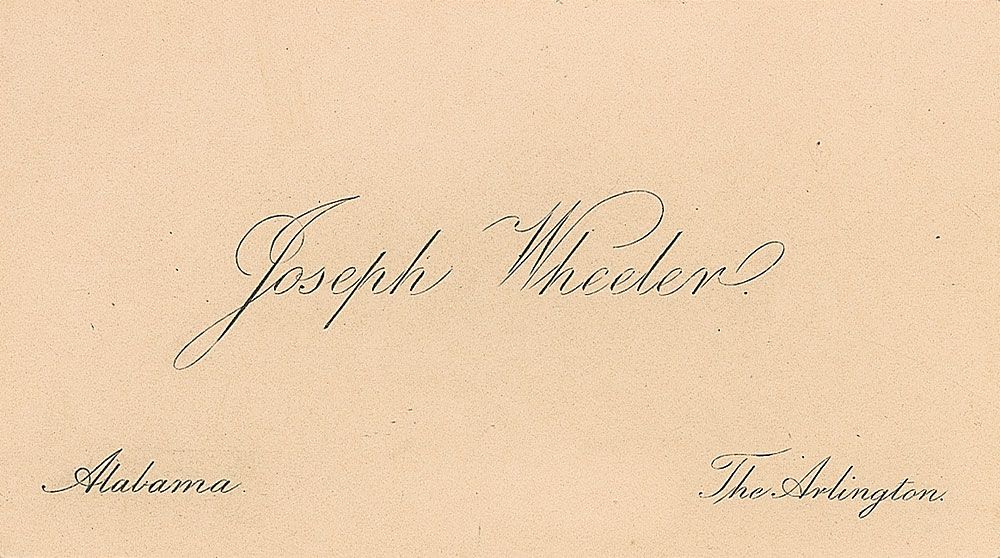 Joseph Wheeler.
Alabama.
The Arlington.